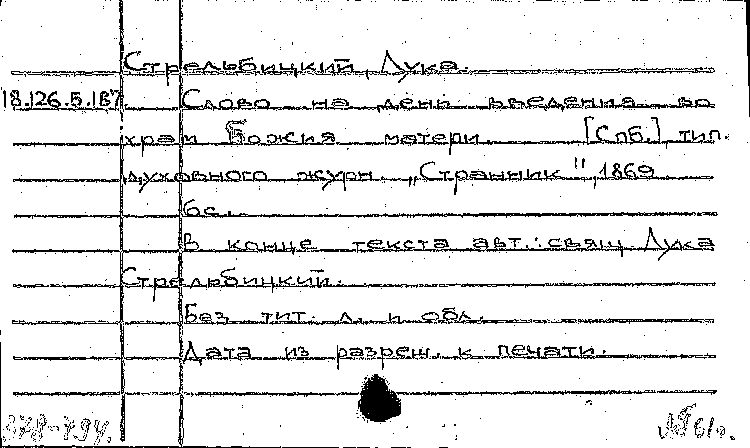 Стрельбицкий, Лука.
18.126.5.187. Слово на день введения во
храм Божия матери. [Спб.], тип.
духовного журн. „Странник", 1869
6с.
В конце текста авт.: свящ. Лука
Стрельбицкий.
Без тит. л. и обл.
Дата из разреш. к печати.
378-794.